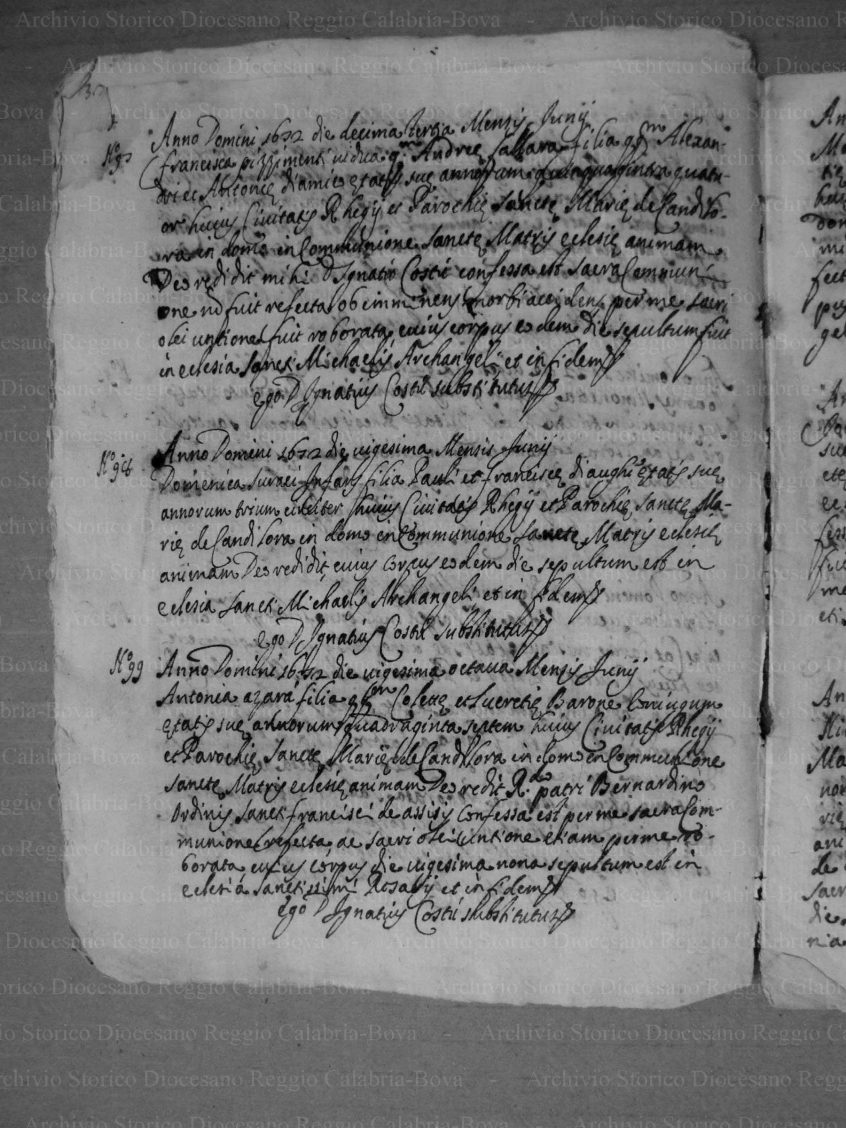 Anno Domini 1672 die decima tertia Mensis Junij
Francisca pizzimenti vidua qm Andreę filia qm Alexan-
dri et Antonię d'amico ętatis suę annorum quinquaginta quatu-
or huius Civitatis Rhegij et Parochię Sanctę Marię de Candilo-
ra in domo in Communione Sanctę Matris eclesię animam
Deo redidit mihi D Ignatio Costú confessa est sacra Commun
one nō fuit refecta ob imminens morbi accidens per me sacri
olei untione fuit roborata cuius corpus eodem die sepultum fuit
in eclesia Sancti Michaelis Archangeli et in fidem
ego D Ignatius Costú substitutus
No 98
Anno Domini 1672 die vigesima Mensis Junij
Domenica Suraci Infans filia Pauli et Franciscę ętatis suę
annorum trium circiter huius Civitatis Rhegij et Parochię Sanctę Ma-
rię de Candilora in domo in Communione Sanctę Matris eclesię
animam Deo redidit cuius corpus eodem die sepultum est in
eclesia Sancti Michaelis Archangeli et in fidem
ego D Ignatius Costú substitutus
No 99
Anno Domini 1672 die vigesima octava Mensis Junij
Antonea azara filia qm Colette et Lucretię Barone coniugum
ętatis suę annorum quadraginta septem huius Civitatis Rhegij
et Parochię Sanctę Marię de Candilora in domo in Communione
Sanctę Matris eclesię animam Deo redit R.do patri Bernardino
Ordinis Sancti Francisci de assisis confessa est per me sacra Com-
munione refecta ac sacri olei untione etiam per me ro-
borata cuius corpus die vigesima nona sepultum est in
eclesia Santissimi Rosarij et in fidem
ego D Ignatius Costú substitutus